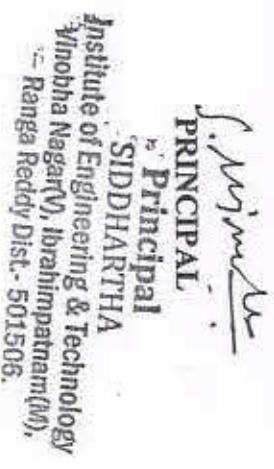 PRINCIPAL
Principal
SIDDHARTHA
Institute of Engineering & Technology
Vinobha Nagar(V), Ibrahimpatnam(M),
Ranga Reddy Dist.- 501506.